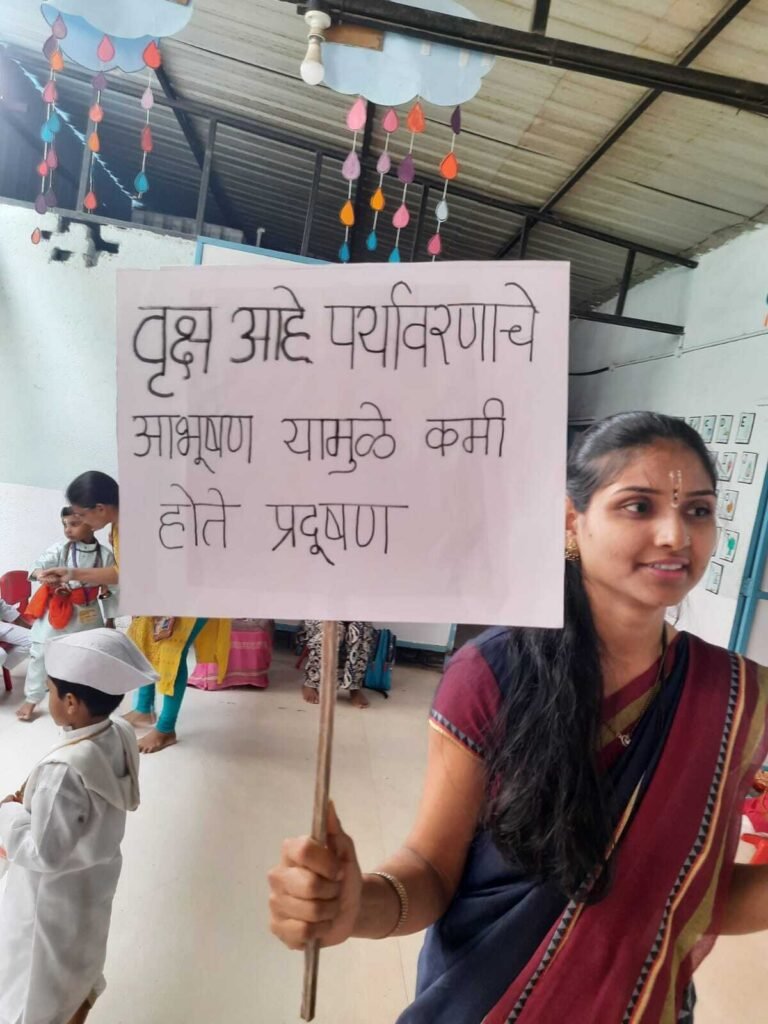 वृक्ष आहे पर्यावरणाचे
आभूषण यामुळे कमी
होते प्रदूषण